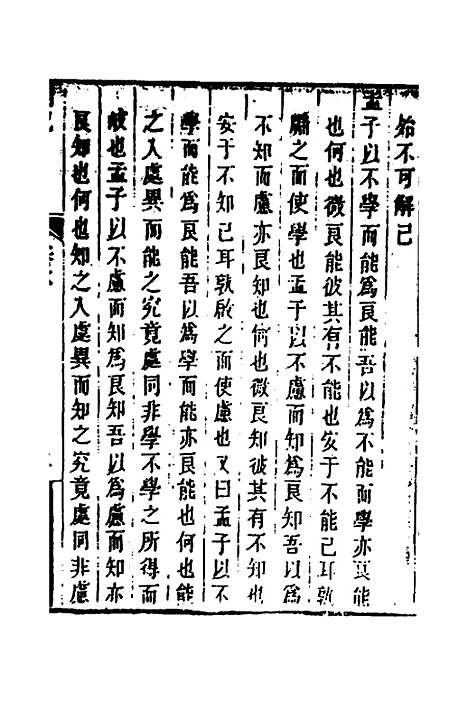 始不可解己
孟子以不學而能爲良能吾以爲不能而學亦良能
也何也微良能彼其有不能也安于不能已耳孰
之而使學也孟子以不慮而知爲良知吾以爲
不知而慮亦良知也何也微良知彼其有不知也
安于不知已耳孰啟之而使慮也又曰孟子以不
學而能爲良能吾以爲學而能亦良能也何也能
之入處異而能之究竟處同非學不學之所得而
岐也孟子以不慮而知爲良知吾以爲慮而知亦
良知也何也知之入處異而知之究竟處同非慮